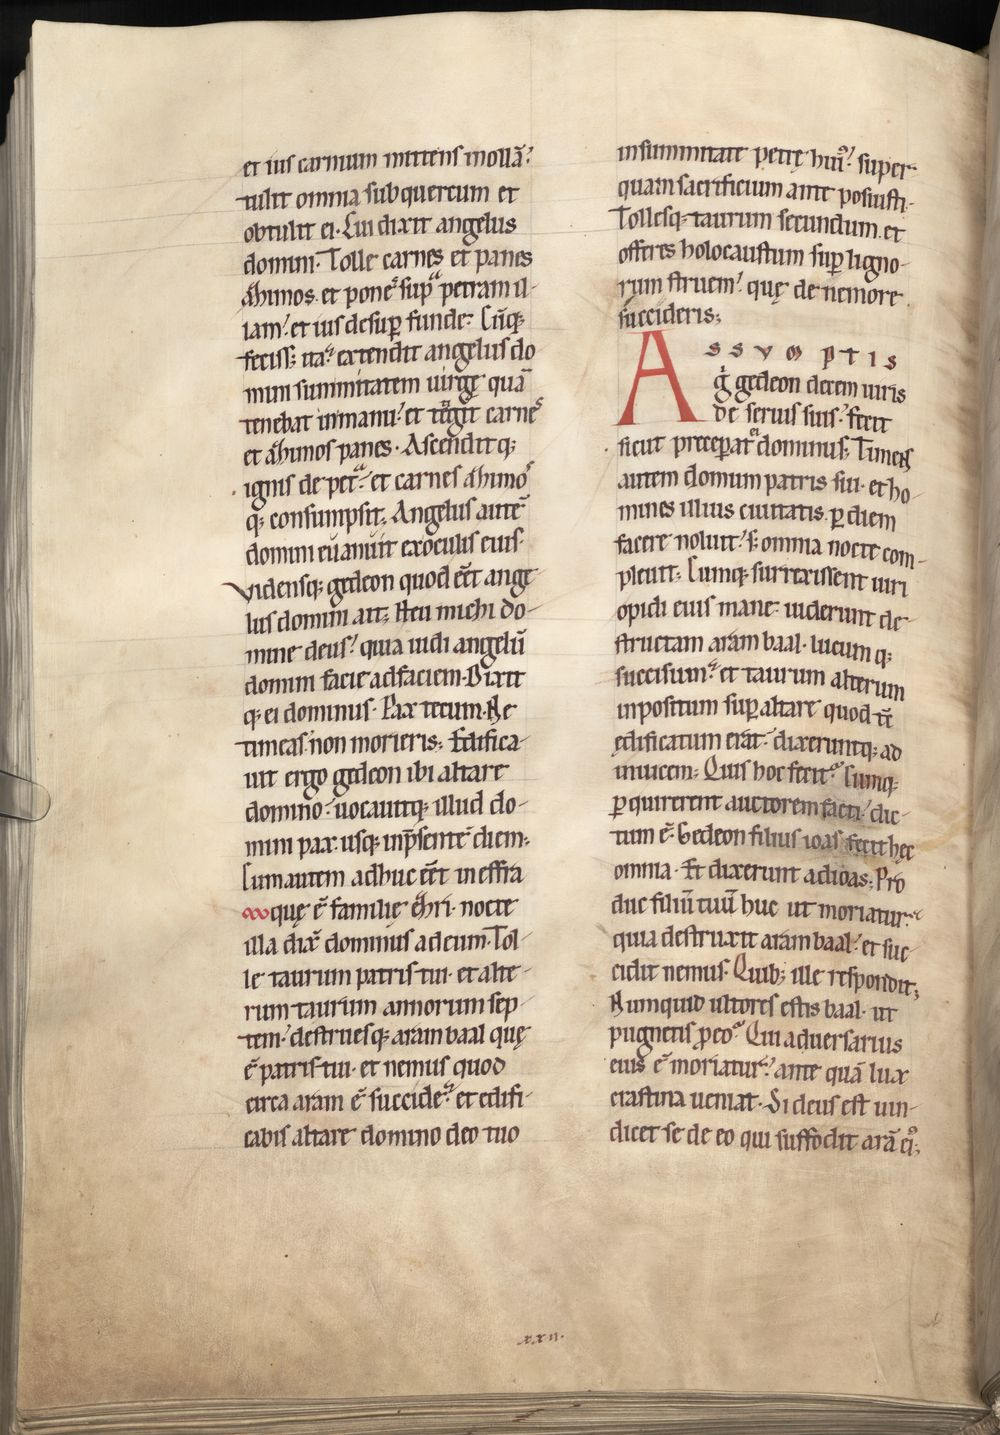 et ius carnium mittens in ollā
tulit omnia sub quercum et
obtulit ei. Cui dixit angelus
domini. Tolle carnes et panes
azimos. et pone sup petram il-
lam. et ius desup funde. Cūq;
feciss; ita. extendit angelus do
mini summitatem uirgę quā
tenebat in manu. et tetigit carnes
et azimos panes. Ascenditq;
ignis de petra. et carnes azimos
q; consumpsit. Angelus autē
domini euanuit ex oculis eius.
Vidensq; gedeon quod eēt ange
lus domini ait; Heu michi do-
mine deus. quia uidi angelū
domini facie ad faciem. Dixit
q; ei dominus. Pax tecum. Ne
timeas. non morieris; Edifica-
uit ergo gedeon ibi altare
domino. uocauitq; illud do-
mini pax. usq; in p̄sentē diem;
Cum autem adhuc eēt in effra
quę ē familię ezri. nocte
illa dix̄ dominus ad eum. Tol-
le taurum patris tui. et alte-
rum taurum annorum sep-
tem. destruesq; aram baal quę
ē patris tui. et nemus quod
circa aram ē succide. et edifi-
cabis altare domino deo tuo
in summitate petrę hui'. super
quam sacrificium ante posuisti.
Tollesq; taurum secundum. et
offeres holocaustum sup ligno-
rum struem. quę de nemore
succideris;
ASSVMPTIS
g̊ gedeon decem uiris
de seruis suis. fecit
sicut preceperat dominus; Timens
autem domum patris sui. et ho-
mines illius ciuitatis. p diem
facere noluit. s; omnia nocte com-
pleuit; Cumq; surrexissent uiri
opidi eius mane. uiderunt de-
structam aram baal. lucumq;
succisum. et taurum alterum
inpositum sup altare quod tc̄
ędificatum erat. dixeruntq; ad
inuicem; Quis hoc fecit? Cumq;
pquirerent auctorem facti. dic-
tum ē. Gedeon filius ioas fecit hęc
omnia. Et dixerunt ad ioas; Pro
duc filiū tuū huc ut moriatur.
quia destruxit aram baal. et suc-
cidit nemus. Quib; ille respondit;
Numquid ultores estis baal. ut
pugnetis p eo? Qui aduersarius
eius ē moriatur. ante quā lux
crastina ueniat. Si deus est uin-
dicet se de eo qui suffodit arā ei';
.xxii.